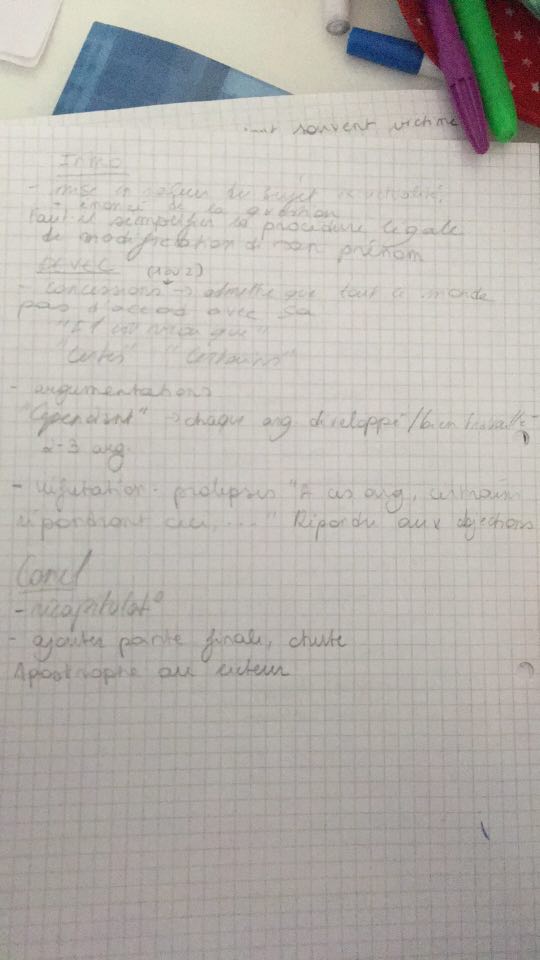 souvent victime
Intro
- mise en valeur du sujet
- énoncé de la question
Faut-il simplifier la procédure légale
de modification d mon prénom
(1 ou 2)
- concessions → admettre que tout le monde
pas d'accord avec sa
"Il est vrai que"
"Certes" "Certains"
- argumentations
"Cependant" → chaque arg développé/bien travaillé
2-3 arg.
- réfutation. prolepses "A ces arg, certains
répondront ceci, ...." Répondre aux objections
Concl
- récapitulat°
- ajouter pointe finale, chute
Apostrophe au lecteur